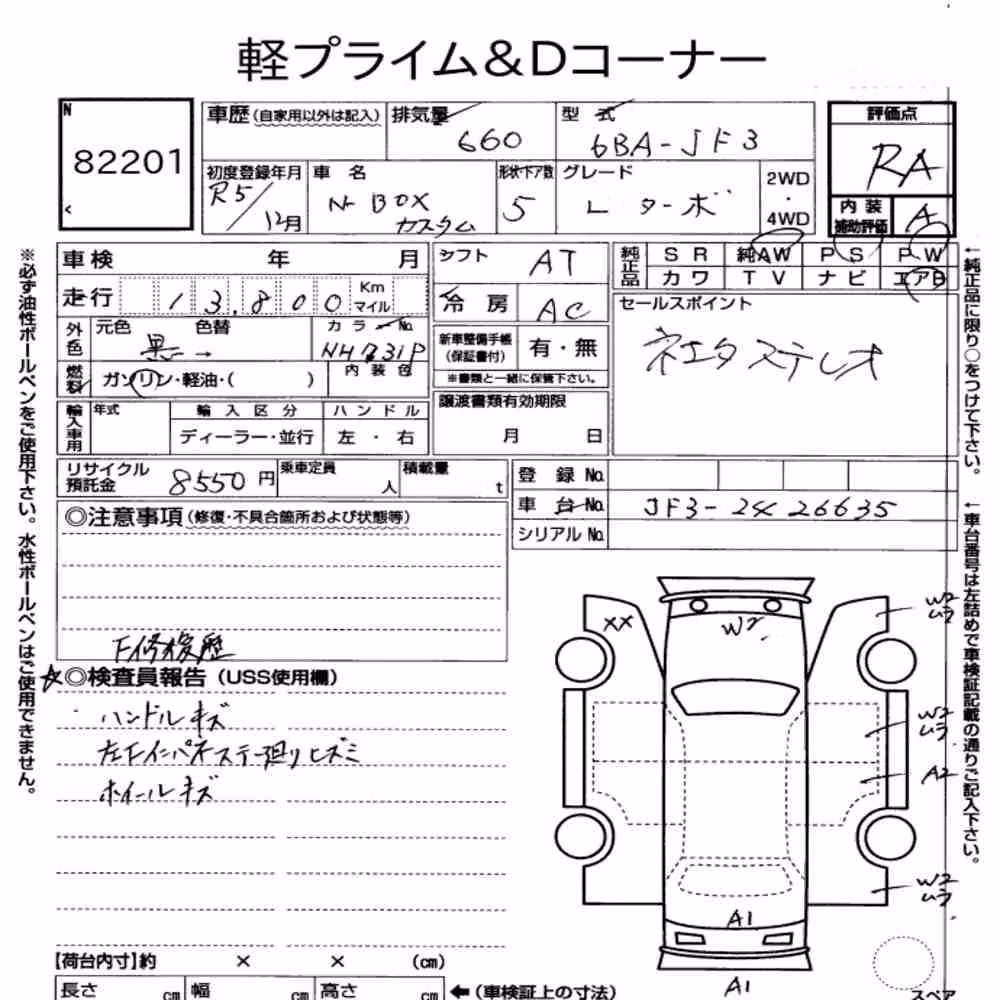 軽プライム&Dコーナー
N
82201
車歴(自家用以外は記入)
排気量
660
型式
6BA-JF3
評価点
RA
初度登録年月
R5/12月
車名
N-BOX
カスタム
形状ドア数
5
グレード
L ターボ
2WD
・
4WD
内装
補助評価
A
※必ず油性ボールペンをご使用下さい。水性ボールペンはご使用できません。
車検 年 月
シフト
AT
純正品
SR 純AW PS PW
カワ TV ナビ エアB
走行
13,800
Km
マイル
冷房
AC
セールスポイント
外色
元色 色替
黒→
カラーNo.
NH731P
新車整備手帳
(保証書付)
有・無
※書類と一緒に保管下さい。
燃料
ガソリン・軽油・( )
内装色
輸入車用
年式
輸入区分
ハンドル
ディーラー・並行
左・右
譲渡書類有効期限
月 日
リサイクル
預託金
8550円
乗車定員
人
積載量
t
登録No.
車台No.
JF3-2426635
シリアルNo.
◎注意事項(修復・不具合箇所および状態等)
F修復歴
☆◎検査員報告(USS使用欄)
ハンドルキズ
左Fインパネステー廻りヒズミ
ホイールキズ
XX
W2
W2
ムラ
W2
ムラ
A2
W2
ムラ
A1
A1
スペア
←純正品に限り○をつけて下さい。
←車台番号は左詰めで車検証記載の通りご記入下さい。
【荷台内寸】約 × × (cm)
長さ cm 幅 cm 高さ cm
←(車検証上の寸法)